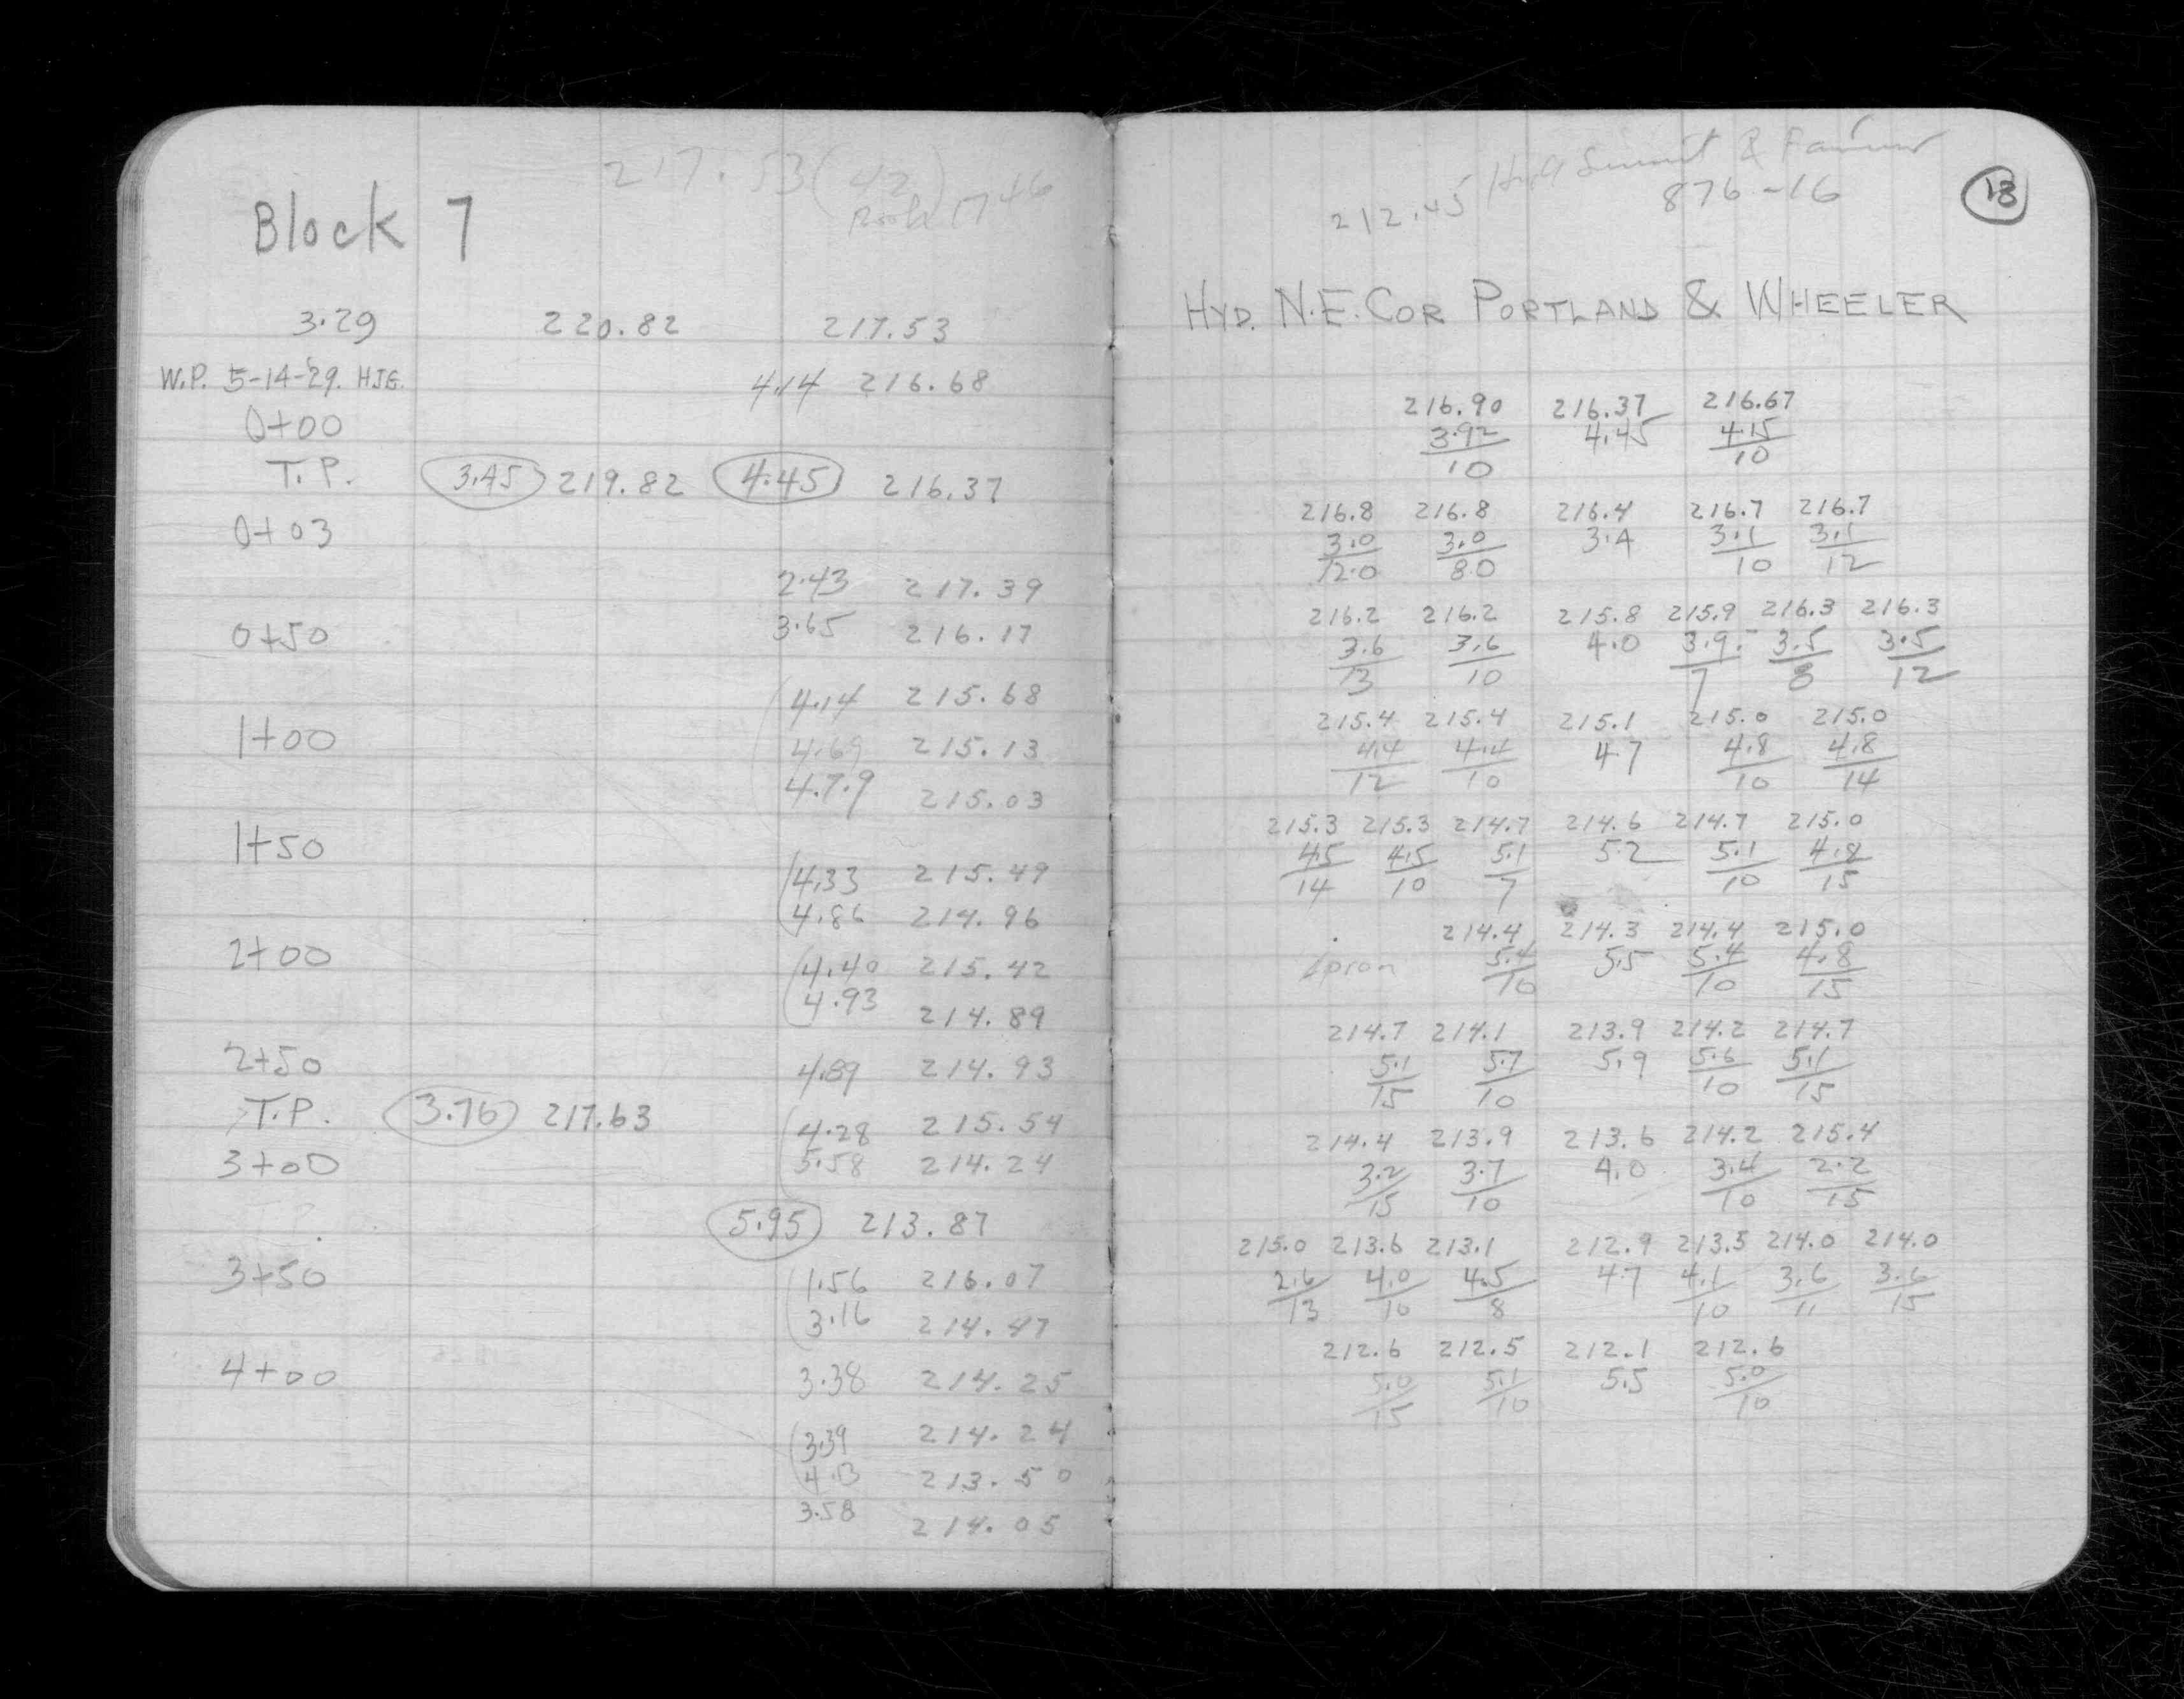 217.53 (42)
Book 1746
Block 7
3.29 220.82 217.53
W.P. 5-14-'29. HJG. 4.14 216.68
0+00
T.P. 3.45 219.82 4.45 216.37
0+03
2.43 217.39
0+50 3.65 216.17
4.14 215.68
1+00 4.69 215.13
4.79 215.03
1+50
4.33 215.49
4.86 214.96
2+00 4.40 215.42
4.93 214.89
2+50 4.89 214.93
T.P. 3.76 217.63 4.28 215.54
3+00 5.58 214.24
T.P. 5.95 213.87
3+50 1.56 216.07
3.16 214.47
4+00 3.38 214.25
3.39 214.24
4.13 213.50
3.58 214.05
212.45 Hyd Summit &
876-16
13
HYD. N.E. COR PORTLAND & WHEELER
216.90 216.37 216.67
3.92 4.45 4.15
10 10
216.8 216.8 216.4 216.7 216.7
3.0 3.0 3.4 3.1 3.1
12.0 8.0 10 12
216.2 216.2 215.8 215.9 216.3 216.3
3.6 3.6 4.0 3.9 3.5 3.5
13 10 7 8 12
215.4 215.4 215.1 215.0 215.0
4.4 4.4 4.7 4.8 4.8
12 10 10 14
215.3 215.3 214.7 214.6 214.7 215.0
4.5 4.5 5.1 5.2 5.1 4.8
14 10 7 10 15
214.4 214.3 214.4 215.0
Apron 5.4 5.5 5.4 4.8
10 10 15
214.7 214.1 213.9 214.2 214.7
5.1 5.7 5.9 5.6 5.1
15 10 10 15
214.4 213.9 213.6 214.2 215.4
3.2 3.7 4.0 3.4 2.2
15 10 10 15
215.0 213.6 213.1 212.9 213.5 214.0 214.0
2.6 4.0 4.5 4.7 4.1 3.6 3.6
13 10 8 10 11 15
212.6 212.5 212.1 212.6
5.0 5.1 5.5 5.0
15 10 10